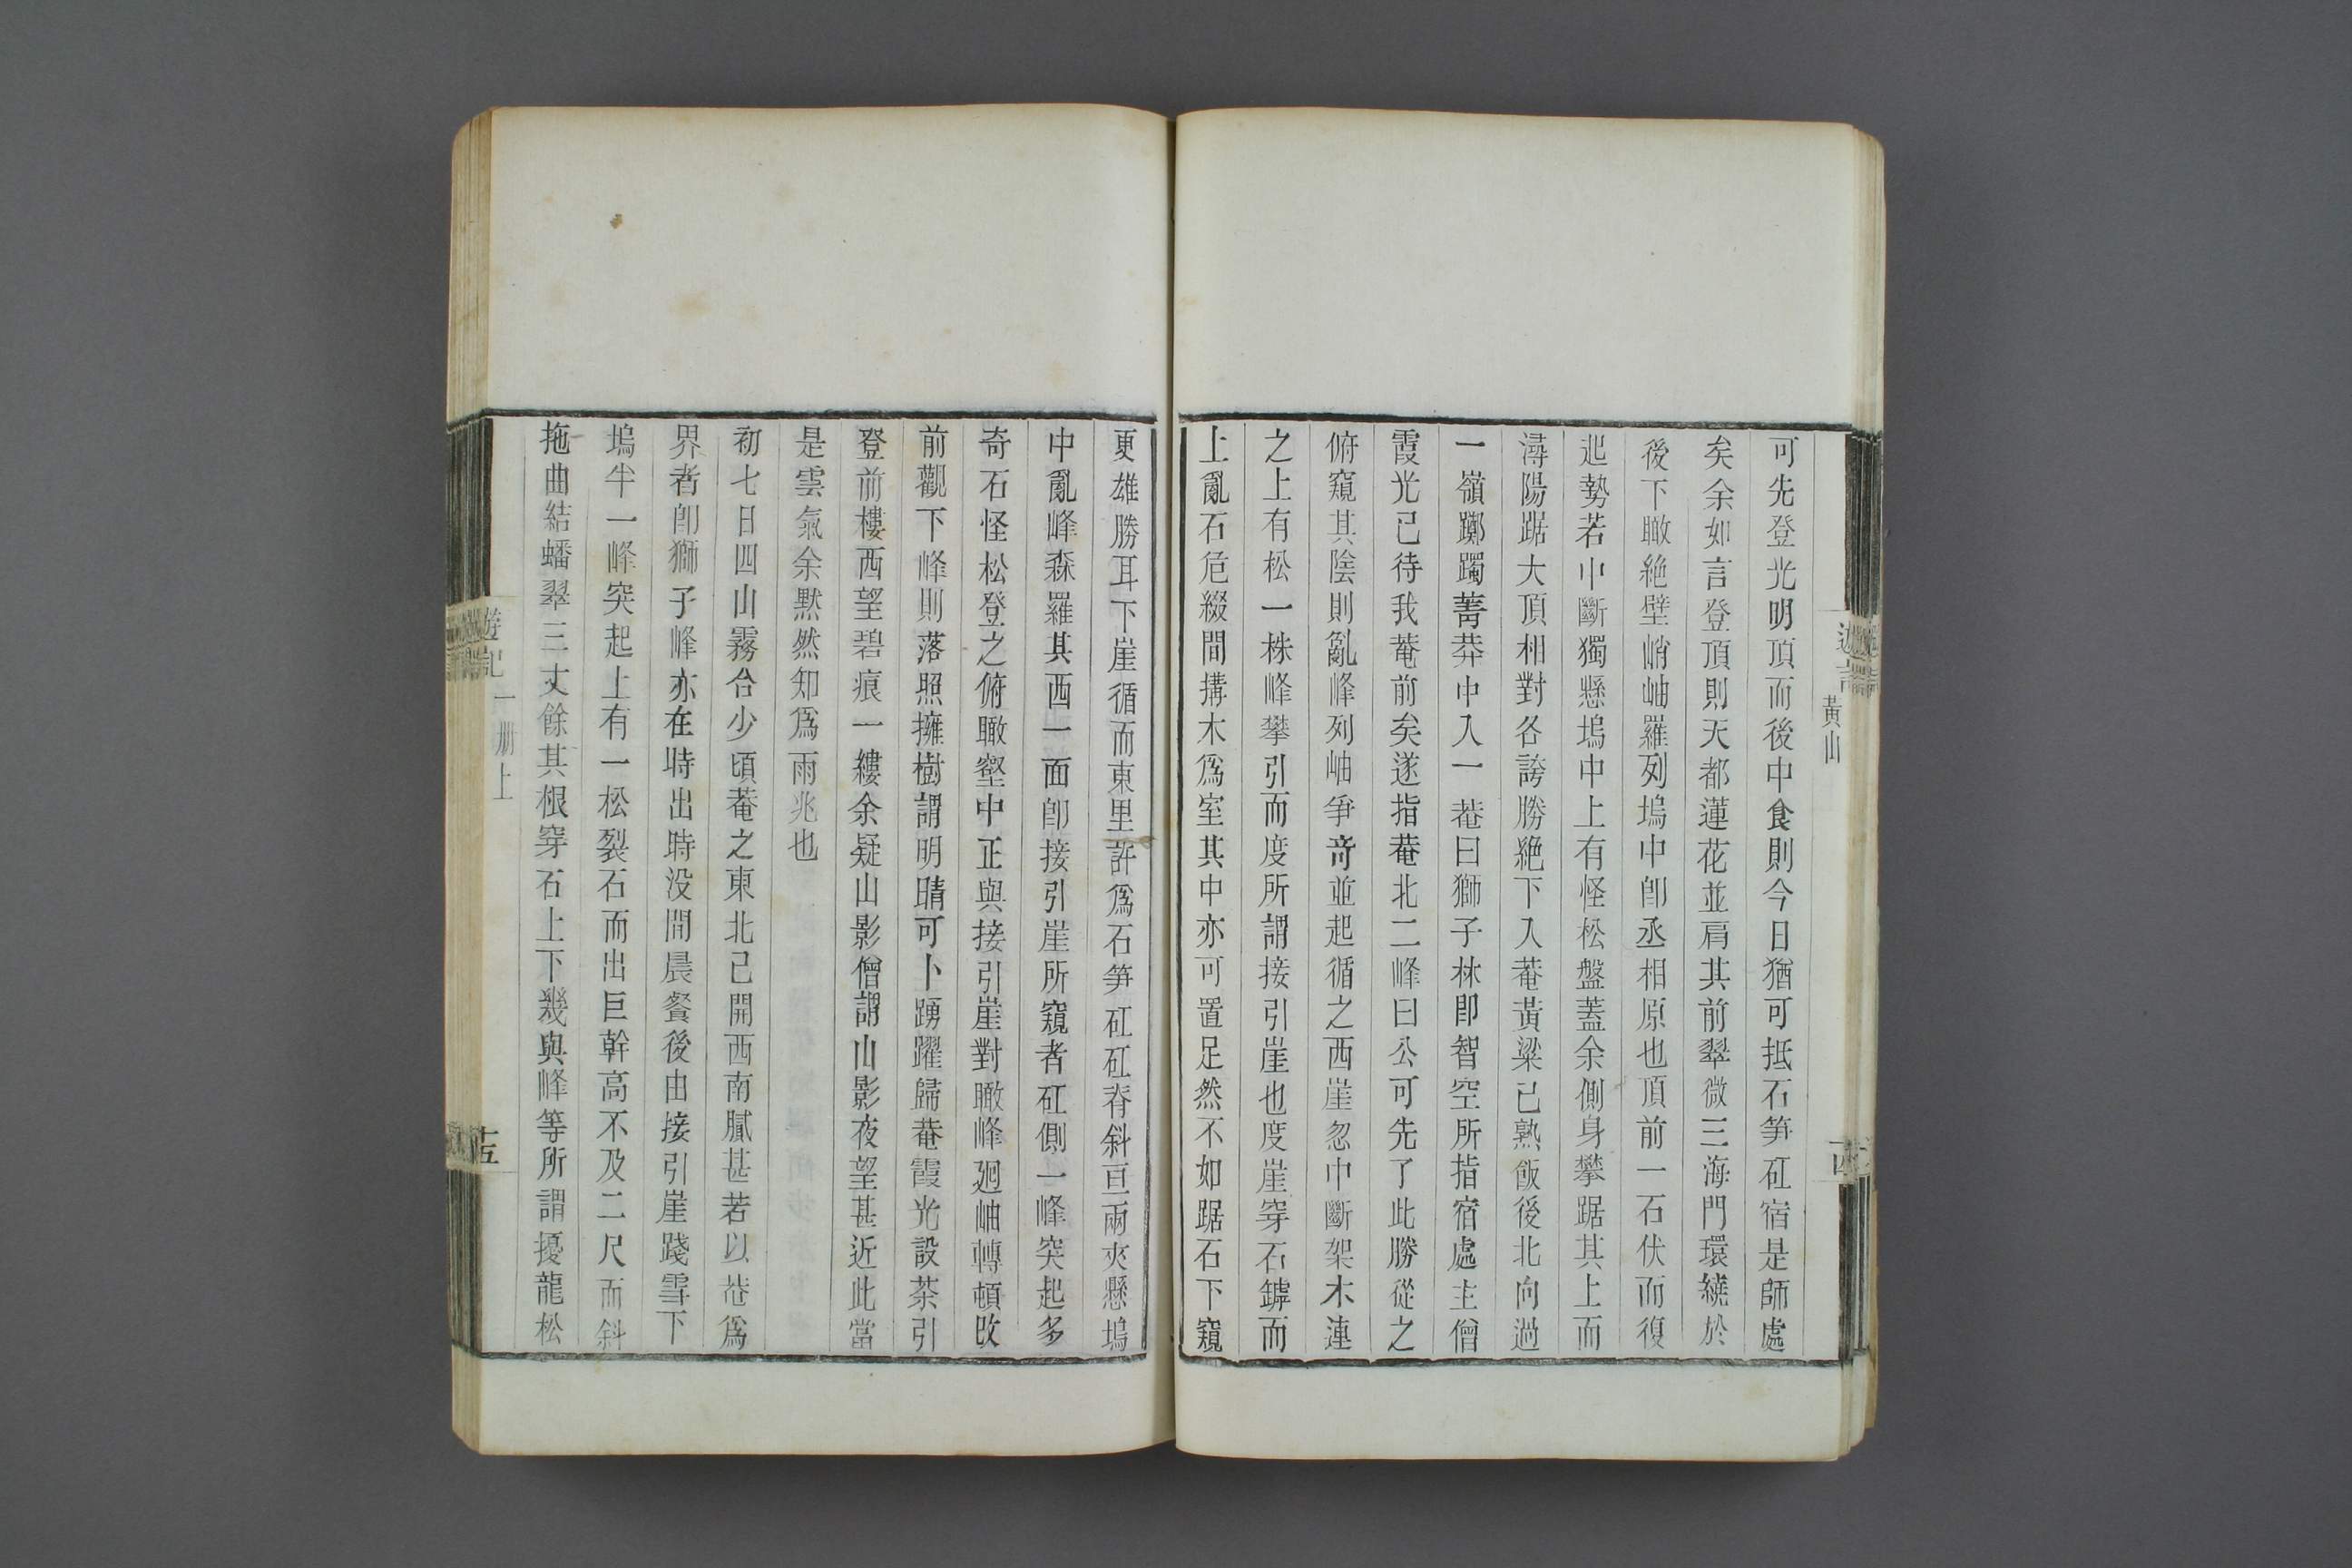 黃山
可先登光明頂而後中食則今日猶可抵石笋矼宿是師處
矣余如言登頂則天都蓮花並肩其前翠微三海門環繞於
後下瞰絶壁峭岫羅列塢中卽丞相原也頂前一石伏而復
起勢若中斷獨懸塢中上有怪松盤蓋余側身攀踞其上而
潯陽踞大頂相對各誇勝絶下入菴黃粱已熟飯後北向過
一嶺躑躅菁莽中入一菴曰獅子林卽智空所指宿處主僧
霞光已待我菴前矣遂指菴北二峰曰公可先了此勝從之
俯窺其陰則亂峰列岫爭奇並起循之西崖忽中斷架木連
之上有松一株峰攀引而度所謂接引崖也度崖穿石罅而
上亂石危綴間搆木爲室其中亦可置足然不如踞石下窺
更雄勝耳下崖循而東里許爲石笋矼矼脊斜亘兩夾懸塢
中亂峰森羅其西一面卽接引崖所窺者矼側一峰突起多
奇石怪松登之俯瞰壑中正與接引崖對瞰峰廻岫轉頓改
前觀下峰則落照擁樹謂明晴可卜踴躍歸菴霞光設茶引
登前樓西望碧痕一縷余疑山影僧謂山影夜望甚近此當
是雲氣余默然知爲雨兆也
初七日四山霧合少頃菴之東北已開西南膩甚若以菴爲
界者卽獅子峰亦在時出時没間晨餐後由接引崖踐雪下
塢半一峰突起上有一松裂石而出巨幹高不及二尺而斜
拖曲結蟠翠三丈餘其根穿石上下幾與峰等所謂擾龍松
遊記
一册上
十五